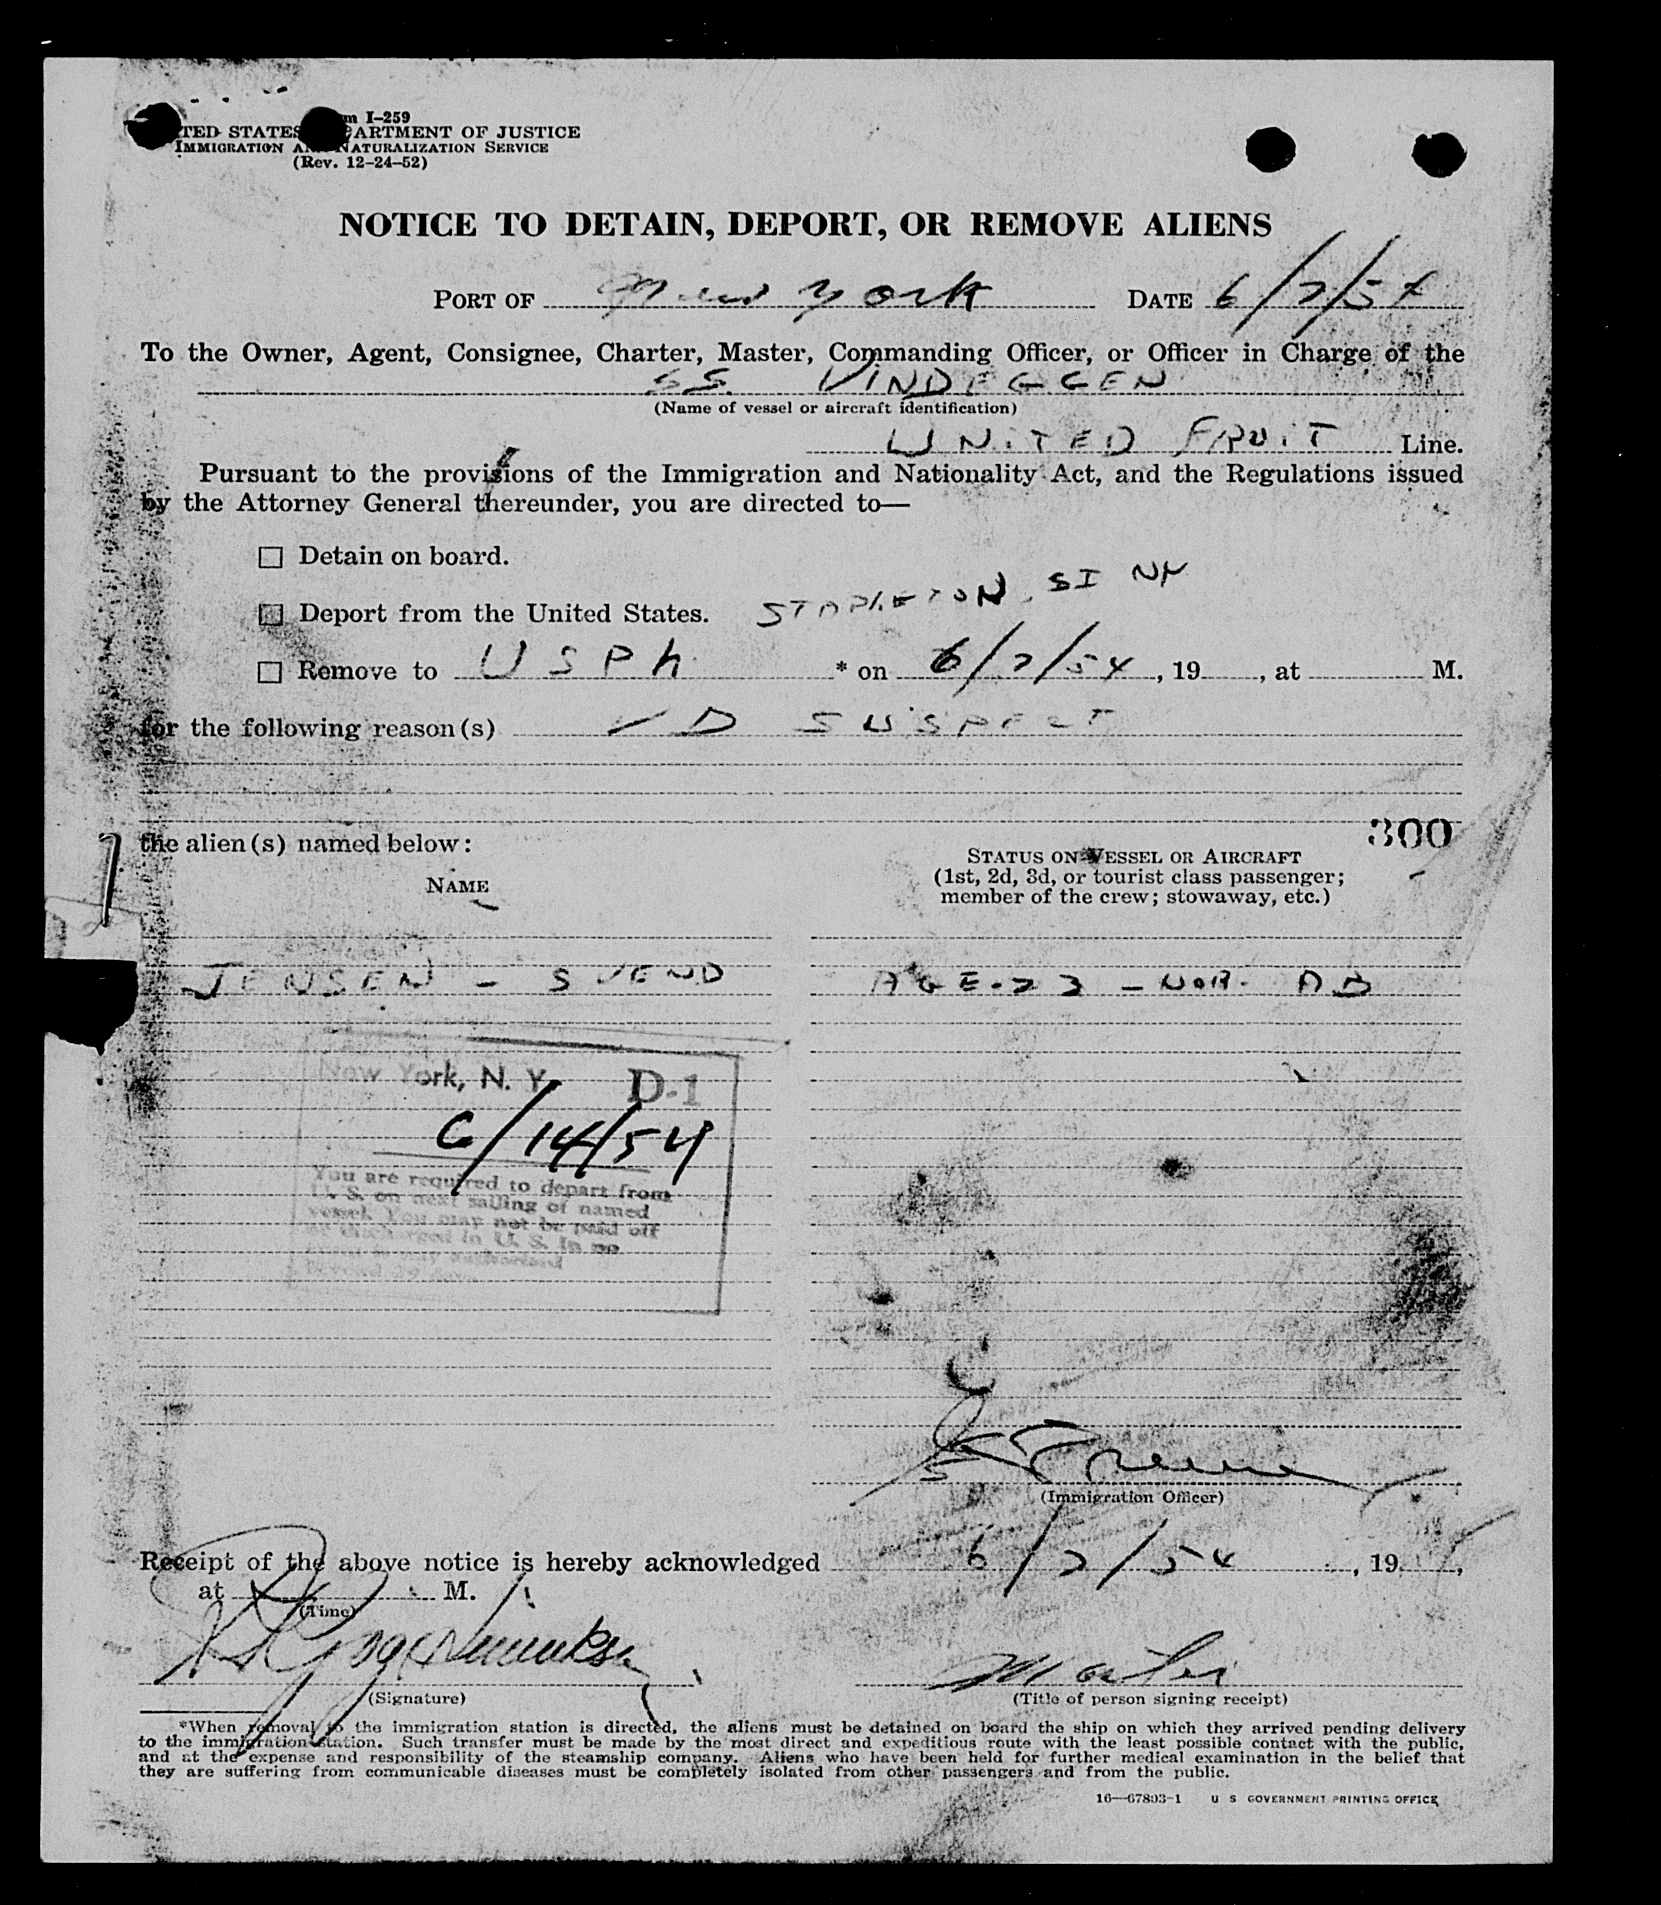 m I-259
TED STATES ARTMENT OF JUSTICE
IMMIGRATION AND NATURALIZATION SERVICE
(Rev. 12-24-52)
NOTICE TO DETAIN, DEPORT, OR REMOVE ALIENS
PORT OF New York DATE 6/7/54
To the Owner, Agent, Consignee, Charter, Master, Commanding Officer, or Officer in Charge of the
SS. VINDEGGEN
(Name of vessel or aircraft identification)
UNITED FRUIT Line.
Pursuant to the provisions of the Immigration and Nationality Act, and the Regulations issued
by the Attorney General thereunder, you are directed to—
☐ Detain on board.
STAPLETON. SI NY
☐ Deport from the United States.
☐ Remove to USPH * on 6/7/54, 19 , at M.
for the following reason(s) VD SUSPECT
300
the alien(s) named below:
STATUS ON VESSEL OR AIRCRAFT
(1st, 2d, 3d, or tourist class passenger;
member of the crew; stowaway, etc.)
NAME
JENSEN - SVEND AGE-23 - NOR. AB
New York, N. Y. D-1
6/14/54
You are required to depart from
U. S. on next sailing of named
vessel. You may not be paid off
or discharged in U. S. In no
(Immigration Officer)
Receipt of the above notice is hereby acknowledged 6/7/54, 19 ,
at M.
(Time)
Master
(Signature) (Title of person signing receipt)
*When removal to the immigration station is directed, the aliens must be detained on board the ship on which they arrived pending delivery
to the immigration station. Such transfer must be made by the most direct and expeditious route with the least possible contact with the public,
and at the expense and responsibility of the steamship company. Aliens who have been held for further medical examination in the belief that
they are suffering from communicable diseases must be completely isolated from other passengers and from the public.
16—67803-1 U S GOVERNMENT PRINTING OFFICE